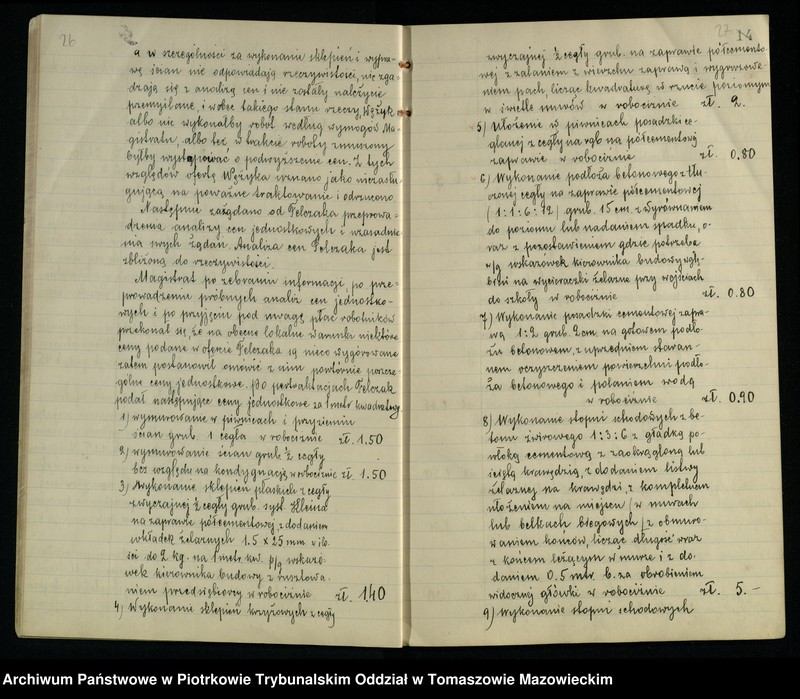 26
a w szczególności za wykonanie sklepień i wypra-
wę ścian nie odpowiadają rzeczywistości, nie zga-
dzają się z analizą cen i nie zostały należycie
przemyślane, i wobec takiego stanu rzeczy, Wężyk
albo nie wykonałby robót według wymogów Ma-
gistratu, albo też w trakcie roboty zmuszony
byłby występować o podwyższenie cen. Z tych
względów ofertę Wężyka uznano jako niezasłu-
gującą na poważne traktowanie i odrzucono.
Następnie zażądano od Pelczaka przeprowa-
dzenia analizy cen jednostkowych i uzasadnie-
nia swych żądań. Analiza cen Pelczaka jest
zbliżoną do rzeczywistości.
Magistrat po zebraniu informacji, po prze-
prowadzeniu próbnych analiz cen jednostko-
wych i po przyjęciu pod uwagę płac robotników
przekonał się, że na obecne lokalne warunki niektóre
ceny podane w ofercie Pelczaka są nieco wygórowane
zatem postanowił omówić z nim powtórnie poszcze-
gólne ceny jednostkowe. Po pertraktacjach Pelczak
podał następujące ceny jednostkowe za 1 metr kwadratowy
1) wymurowanie w piwnicach i przyziemiu
ścian grub. 1 cegła w robociźnie zł. 1.50
2) wymurowanie ścian grub. ½ cegły
bez względu na kondygnację, w robociźnie zł. 1.50
3) Wykonanie sklepień płaskich z cegły
zwyczajnej ½ cegły grub. syst. Kleina
na zaprawie półcementowej, z dodaniem
wkładek żelaznych 1.5 x 25 mm w ilo-
ści do 2 kg. na 1 metr. kw. p/g wskazó-
wek kierownika budowy z rusztowa-
niem przedsiębiorcy w robociźnie zł. 1.40
4) Wykonanie sklepień krzyżowych z cegły
27
zwyczajnej ½ cegły grub. na zaprawie półcemento-
wej z zalaniem z wierzchu zaprawą i wygruzowa-
niem pach, licząc kwadraturę w rzucie poziomym
w świetle murów w robociźnie zł. 2.
5) Ułożenie w piwnicach posadzki ce-
glanej z cegły na rąb na półcementowej
zaprawie w robociźnie zł. 0.80
6) Wykonanie podłoża betonowego z tłu-
czonej cegły na zaprawie półcementowej
(1:1:6:12) grub. 15 cm. z wyrównaniem
do poziomu lub nadaniem spadku, o-
raz z pozostawieniem gdzie potrzeba
w/g wskazówek kierownika budowy wgłę-
bień na wycieraczki żelazne przy wejściach
do szkoły w robociźnie zł. 0.80
7) Wykonanie posadzki cementowej zapra-
wą 1:2 grub. 2 cm. na gotowem podło-
żu betonowem, z uprzedniem staran-
nem oczyszczeniem powierzchni podło-
ża betonowego i polaniem wodą
w robociźnie zł. 0.90
8) Wykonanie stopni schodowych z be-
tonu żwirowego 1:3:6 z gładką po-
włoką cementową z zaokrągloną lub
ściętą krawędzią, z dodaniem listwy
żelaznej na krawędzi, z kompletnem
ułożeniem na miejscu (w murach
lub belkach biegowych) z obmuro-
waniem końców, licząc długość wraz
z końcem leżącym w murze i z do-
daniem 0.5 mtr. b. za obrobieniem
widocznej główki w robociźnie zł. 5.-
9) Wykonanie stopni schodowych
Archiwum Państwowe w Piotrkowie Trybunalskim Oddział w Tomaszowie Mazowieckim